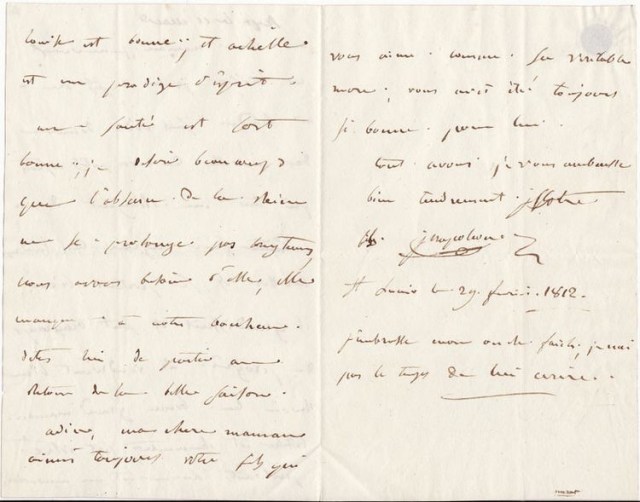 louise est bonne; et achille
est un prodige d'esprit.
ma santé est fort
bonne; je désire beaucoup
que l'absence de la
ne se prolonge pas longtems,
nous avons besoin d'elle, elle
manque à notre bonheur.
dites lui de partir au
retour de la belle saison.
adieu, ma chere maman
aimés toujours votre fils qui
vous aime comme sa véritable
mere; vous avés été toujours
si bonne pour lui.
tout avous, je vous embrasse
bien tendrement. votre
j napoleon
A le 29 1812.
j'embrasse mon oncle je n'ai
pas le temps de lui écrire.